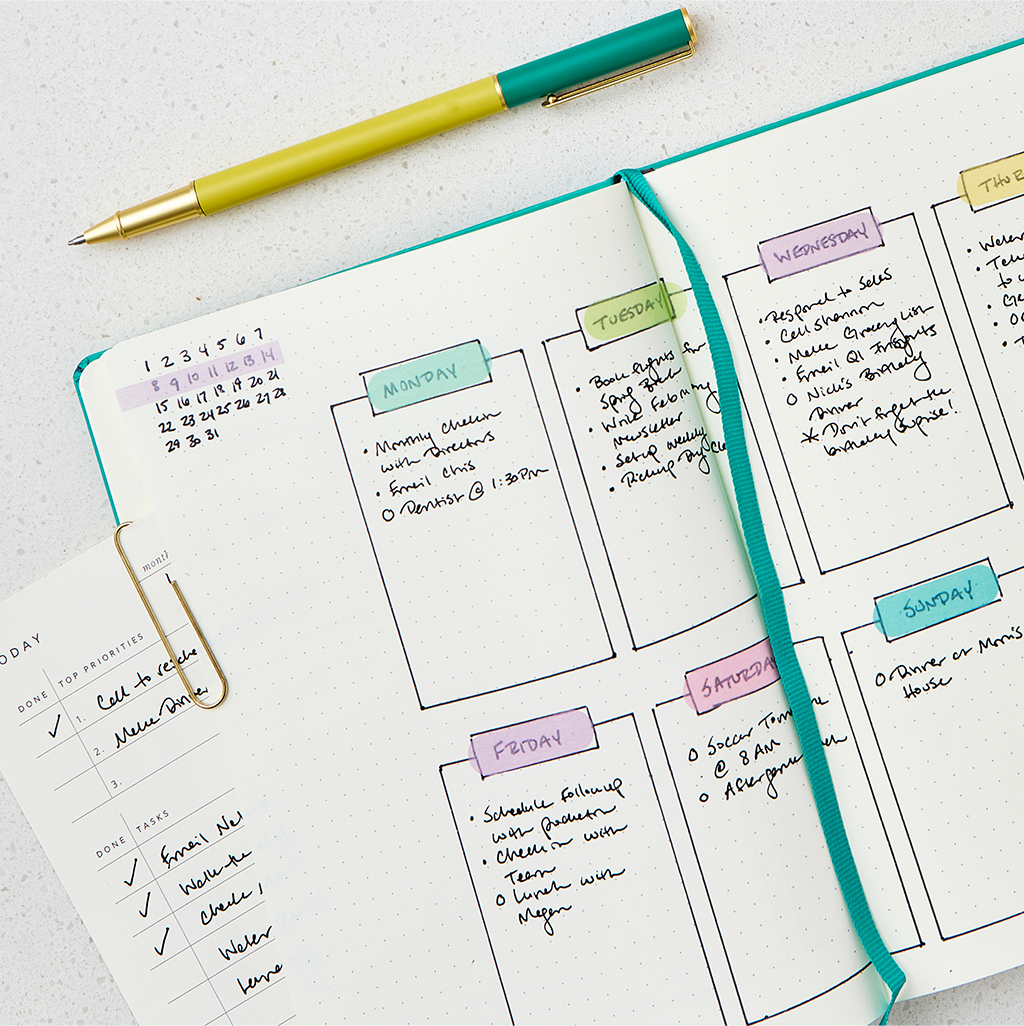 1 2 3 4 5 6 7
8 9 10 11 12 13 14
15 16 17 18 19 20 21
22 23 24 25 26 27 28
29 30 31
MONDAY
• Monthly Checkin
with Directors
• Email Chis
O Dentist @ 1:30pm
TUESDAY
• Book flights for
Spring Break
• Write
Newsletter
• Setup weekly
• Pickup Dry
WEDNESDAY
• Respond to Sales
• Call Shannon
• Make Grocery List
• Email Q1 Insights
O Nick's Birthday
Dinner
* Don't forget the
birthday surprise!
THUR
• Water
to
FRIDAY
• Schedule Followup
with production
• Check in with
Team
O Lunch with
Megan
SATURDA
O Soccer
@ 8 AM
O
SUNDAY
O Dinner at Mom's
House
month
ODAY
DONE TOP PRIORITIES
1. Call to
2. Make Dinner
3.
DONE TASKS
Email
Walk the
Check
Water